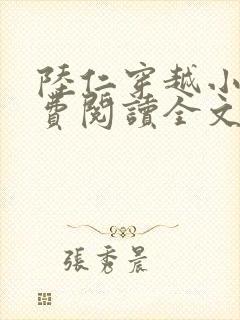 陸仁穿越小
費閱讀全文
張秀晨